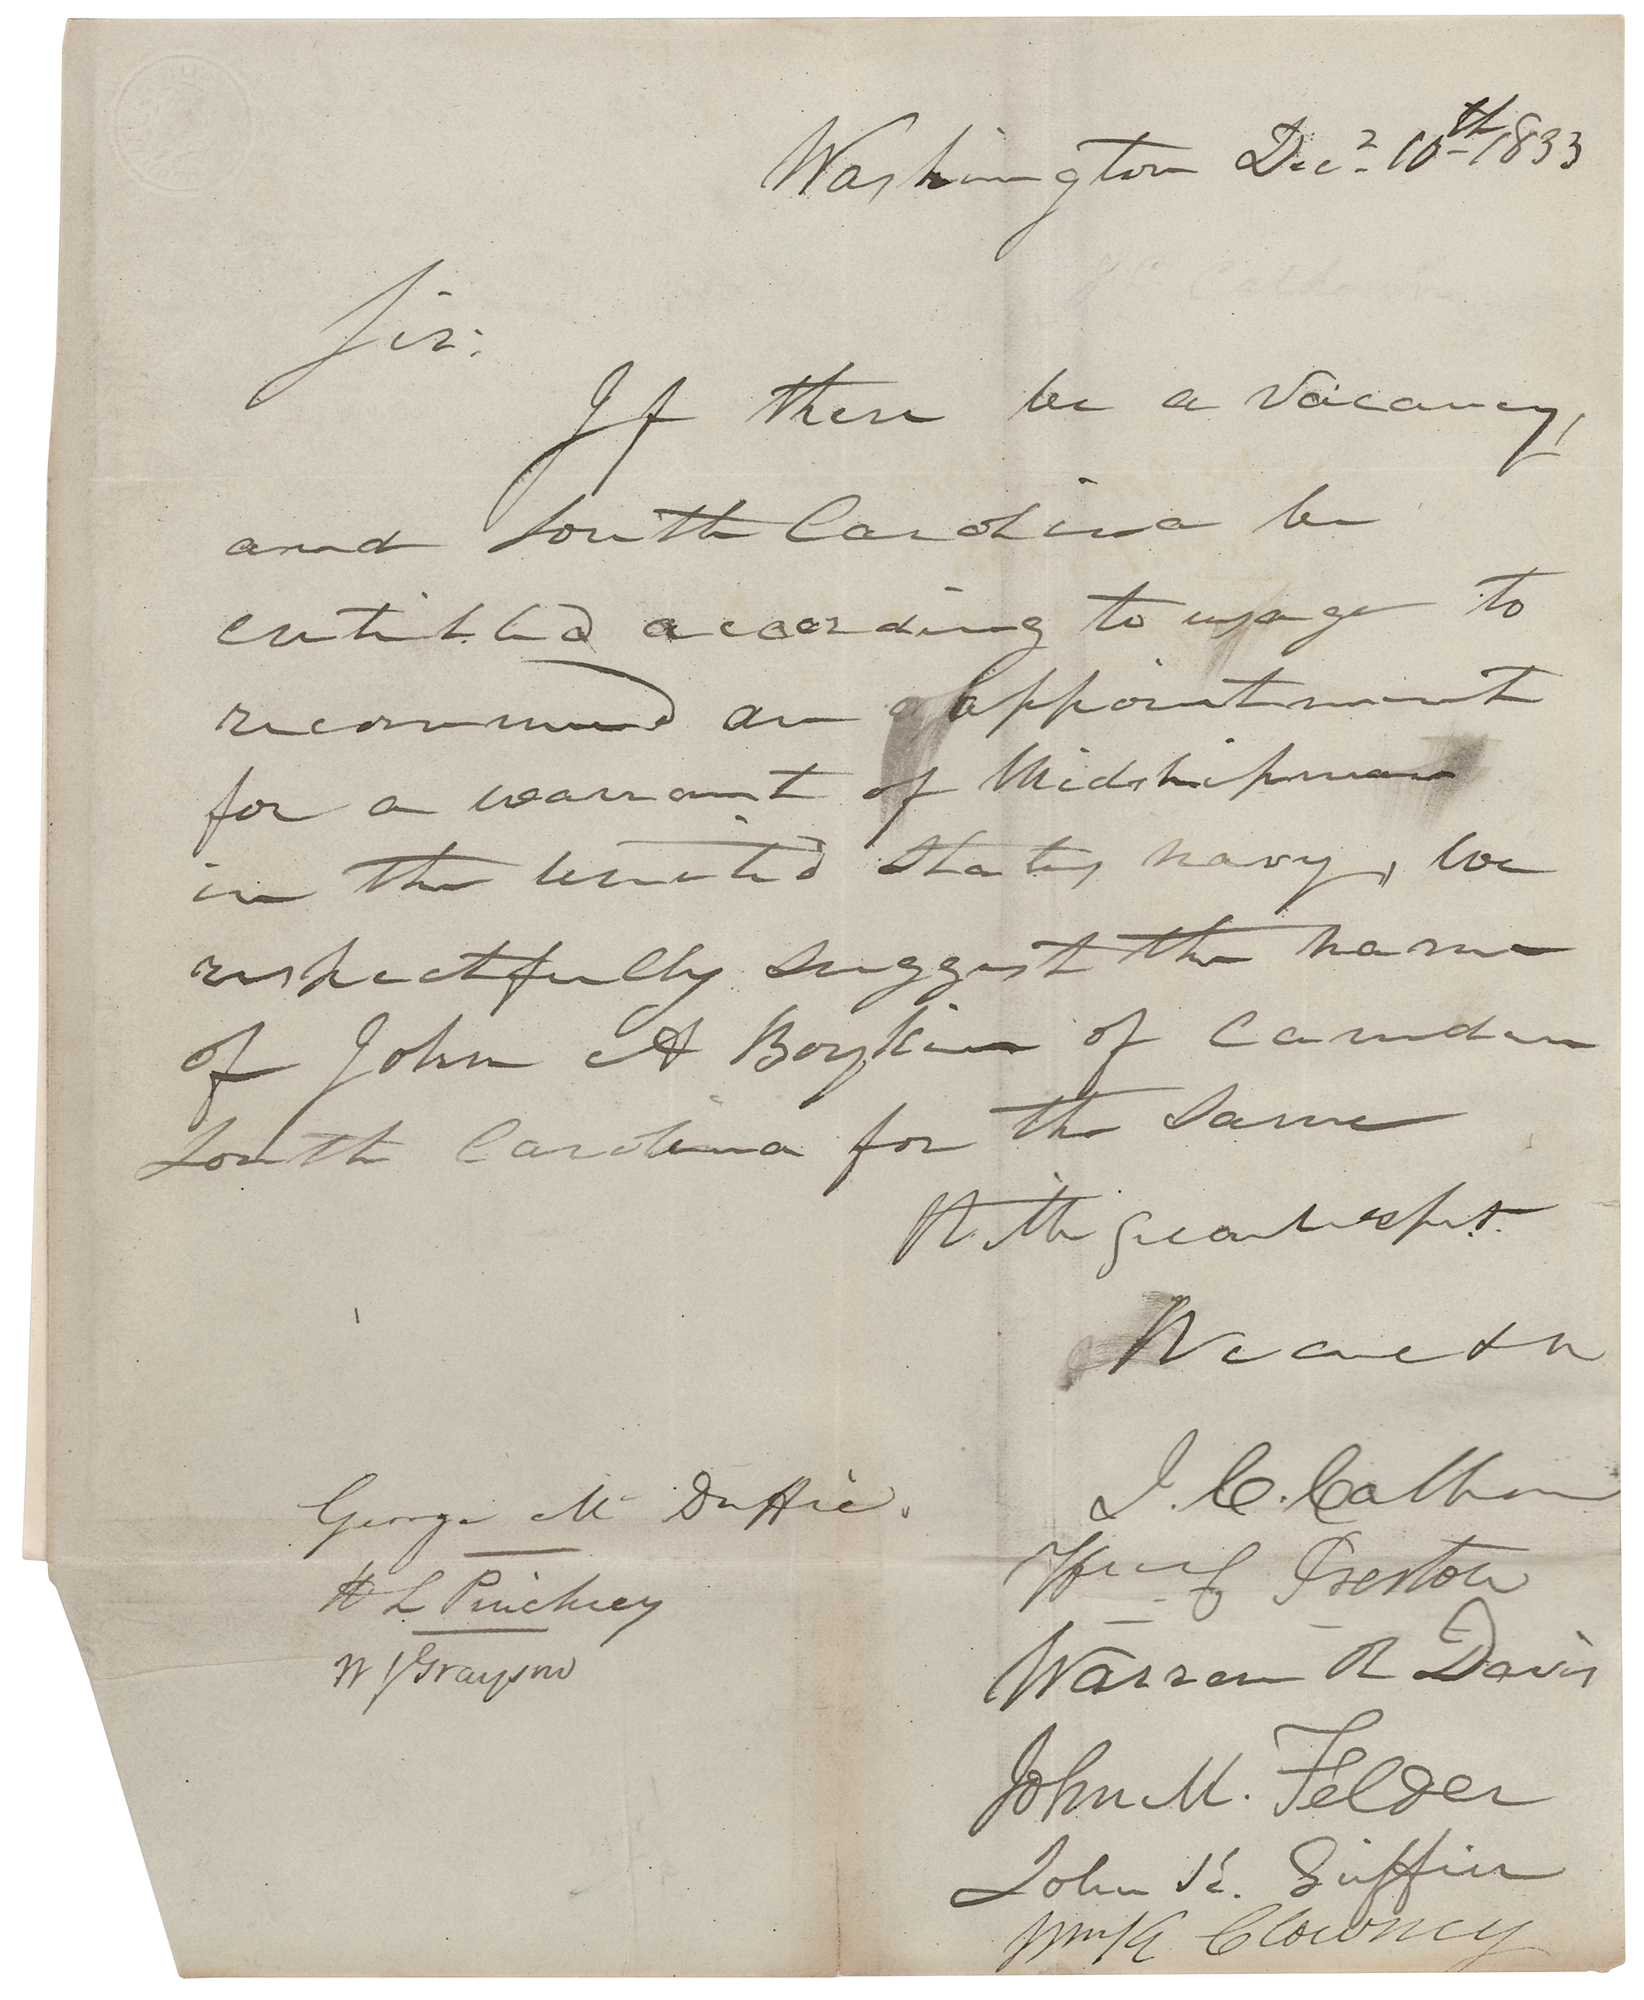 Washington Decr. 10th 1833
Sir:
If there be a vacancy,
and South Carolina be
entitled according to usage to
recommend an appointment
for a warrant of Midshipman
in the United States navy, we
respectfully suggest the name
of John A Boykin of Camden
South Carolina for the same
With great respt.
We are &c
J. C. Calhoun
Wm. C Preston
Warren R Davis
John M. Felder
John K. Griffin
Wm K Clowney
George Mc Duffie.
H L Pinckney
W J Grayson